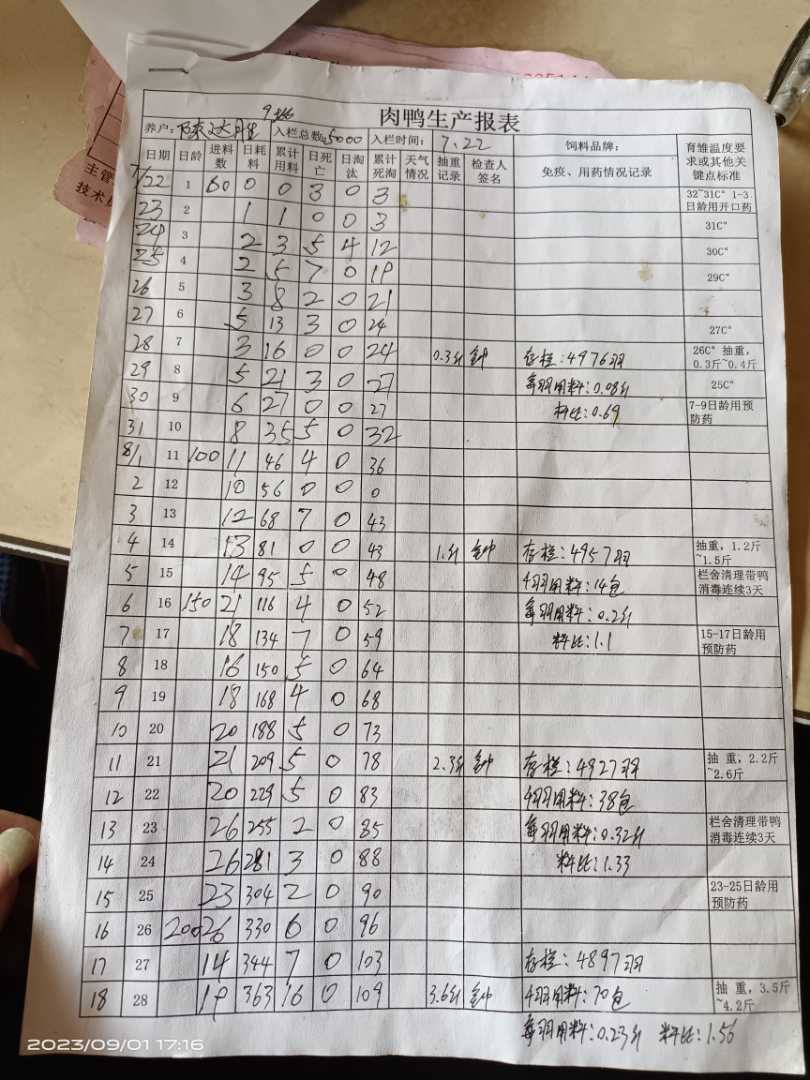 肉鸭生产报表
养户: 入栏总数: 5000 入栏时间: 7.22 饲料品牌: 育雏温度要求或其他关键点标准
日期 日龄 进料数 日耗料 累计用料 日死亡 日淘汰 累计死淘 天气情况 抽重记录 检查人签名 免疫、用药情况记录
7/22 1 60 0 0 3 0 3 32~31C° 1-3日龄用开口药
23 2 1 1 0 0 3 31C°
24 3 2 3 5 4 12 30C°
25 4 2 5 7 0 19 29C°
26 5 3 8 2 0 21
27 6 5 13 3 0 24 27C°
28 7 3 16 0 0 24 0.3斤 存栏:4976羽 26C° 抽重,0.3斤~0.4斤
29 8 5 21 3 0 27 每羽用料:0.08斤 25C°
30 9 6 27 0 0 27 料比:0.69 7-9日龄用预防药
31 10 8 35 5 0 32
8/1 11 100 11 46 4 0 36
2 12 10 56 0 0 0
3 13 12 68 7 0 43
4 14 13 81 0 0 43 1.1斤 存栏:4957羽 抽重,1.2斤~1.5斤
5 15 14 95 5 0 48 用料:14包 栏舍清理带鸭消毒连续3天
6 16 150 21 116 4 0 52 每羽用料:0.2斤
7 17 18 134 7 0 59 料比:1.1 15-17日龄用预防药
8 18 16 150 5 0 64
9 19 18 168 4 0 68
10 20 20 188 5 0 73
11 21 21 209 5 0 78 2.3斤 存栏:4927羽 抽重,2.2斤~2.6斤
12 22 20 229 5 0 83 用料:38包
13 23 26 255 2 0 85 每羽用料:0.32斤 栏舍清理带鸭消毒连续3天
14 24 26 281 3 0 88 料比:1.33
15 25 23 304 2 0 90 23-25日龄用预防药
16 26 200 26 330 6 0 96
17 27 14 344 7 0 103 存栏:4897羽
18 28 19 363 16 0 109 3.6斤 用料:70包 抽重,3.5斤~4.2斤
每羽用料:0.23斤 料比:1.56
主管
技术
2023/09/01 17:16